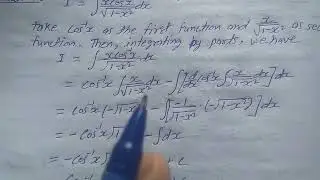 I = ∫ x cos⁻¹x / √1-x² dx
take cos⁻¹x as the first function and x/√1-x² as sec
function. Then, integrating by parts, we have
I = ∫ x cos⁻¹x / √1-x² dx
= cos⁻¹x ∫ x/√1-x² dx - ∫[d/dx cos⁻¹x ∫ x/√1-x² dx] dx
= cos⁻¹x (-√1-x²) - ∫[-1/√1-x² · (-√1-x²)] dx
= - cos⁻¹x √1-x² - ∫ dx
= - cos⁻¹x √ + c